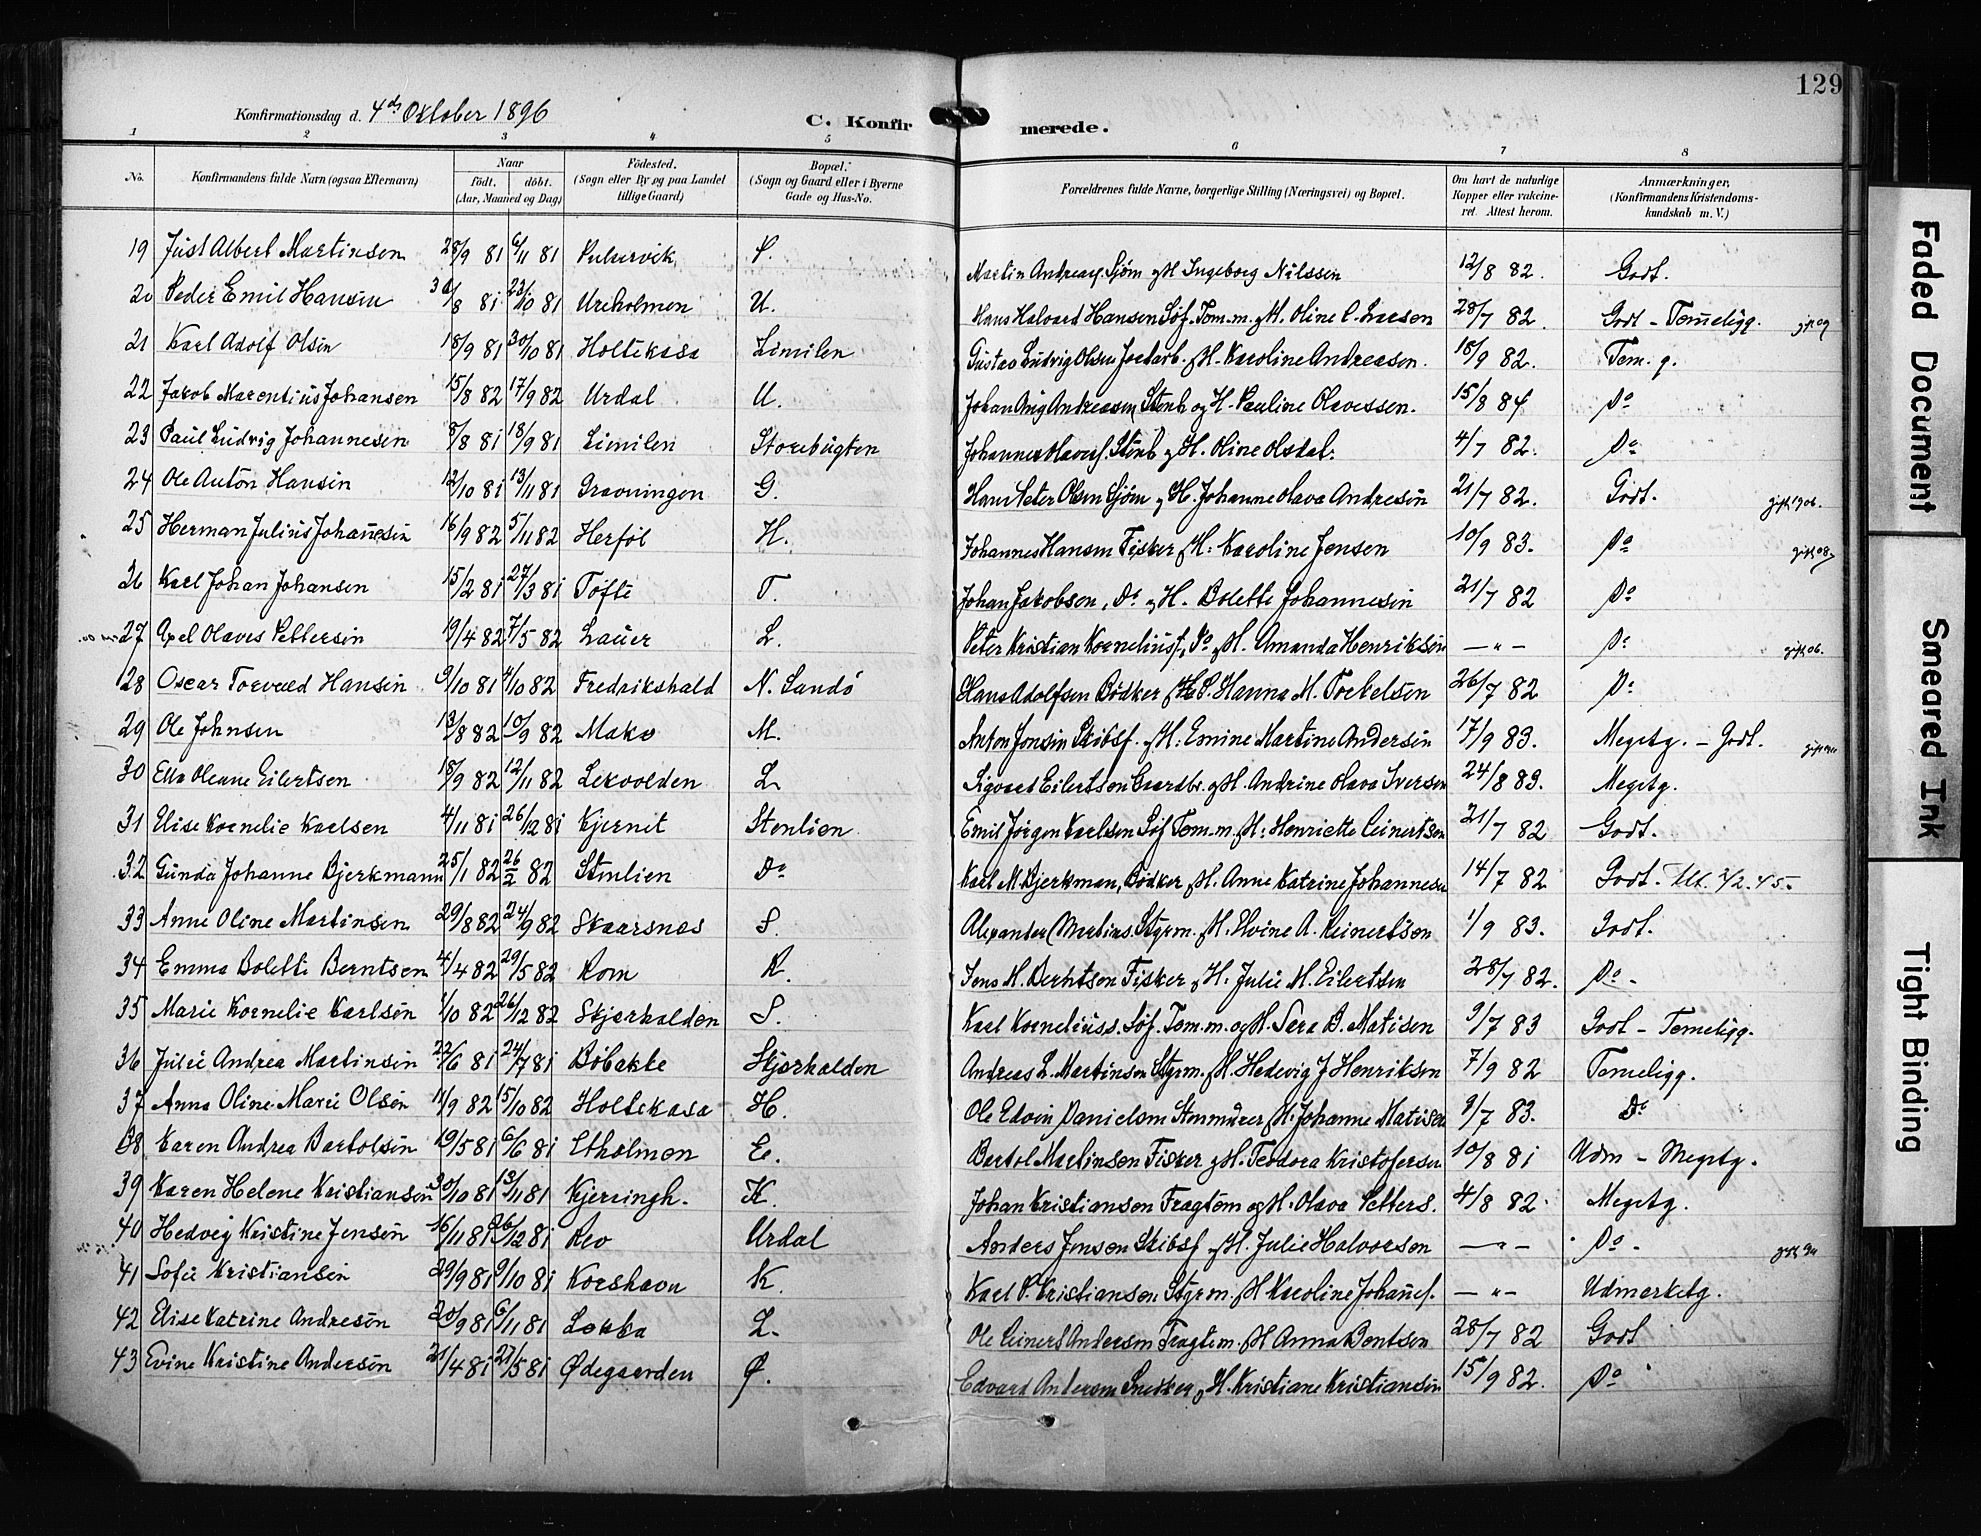 129
Konfirmationsdag d. 4de Oktober 1896
C. Konfirmerede.
1 2 3 4 5 6 7 8
No. Konfirmandens fulde Navn (ogsaa Efternavn) Naar født, døbt. (Aar, Maaned og Dag) Fødested. (Sogn eller By og paa Landet tillige Gaard) Bopæl. (Sogn og Gaard eller i Byerne Gade og Hus-No. Forældrenes fulde Navne, borgerlige Stilling (Næringsvei) og Bopæl. Om havt de naturlige Kopper eller vakcineret. Attest herom. Anmærkninger, (Konfirmandens Kristendomskundskab m. V.)
19 Just Albert Martinsen 28/9 81 6/11 81 Pulservik P. Martin Andreas. Sjøm og H Ingeborg Nilssen 12/8 82. Godt.
20 Peder Emil Hansen 31/8 81 23/10 81 Ureholmen U. Hans Halvard Hansen Søf. Tom.m. og H. Oline C. Larsen 28/7 82. Godt - Temeligg. gift 09
21 Karl Adolf Olsen 18/9 81 30/10 81 Holtekasa Limilen Gustav Ludvig Olsen Jordarb. og H. Karoline Andreasen. 18/9 82. Tem. g.
22 Jakob Marentius Johansen 15/8 82 17/9 82 Urdal U. Johan Aug Andreasen Stenh og H. Pauline Olavessen. 15/8 84 Do
23 Paul Ludvig Johannesen 8/8 81 18/9 81 Limilen Storebugten Johannes Olaves. Stenh og H. Oline Olsdat. 4/7 82. Do
24 Ole Anton Hansen 12/10 81 13/11 81 Gravningen G. Hans Peter Olsen Sjøm og H. Johanne Olava Andresen 21/7 82. Godt. gift 1906.
25 Herman Julius Johannesen 16/9 82 5/11 82 Herføl H. Johannes Hansen Fisker og H. Karoline Jensen 10/9 83. Do gift 08
26 Karl Johan Johansen 15/2 81 27/3 81 Tofte T. Johan Jakobsen, Do og H. Bolette Johannesen 21/7 82 Do
27 Axel Olaves Pettersen 19/4 82 7/5 82 Lauer L. Peter Kristian Korneliusf. Do og H. Amanda Henriksen — „ — Do gift 06.
28 Oscar Torvald Hansen 9/10 81 4/10 82 Fredrikshald N. Sandø Hans Adolfsen Bødker og H. Hanna M. Torkelsen 26/7 82 Do
29 Ole Johnsen 13/8 82 10/9 82 Makø M. Anton Jonsen Skibsf. og H. Emine Martine Andersen 17/9 83. Megetg. - Godt.
30 Ella Oleane Eilertsen 18/9 82 12/11 82 Lervolden L Sigvart Eilertsen Gaardbr. og H. Andrine Olava Iversen 24/8 83. Megetg.
31 Elise Kornelie Karlsen 4/11 81 26/12 81 Kjernet Stenlien Emil Jørgen Karlsen Søf Tom.m. og H. Henriette Leinertsen 21/7 82 Godt.
32 Gunda Johanne Bjerkmann 25/1 82 26/2 82 Stenlien Do Karl M. Bjerkman, Bødker og H. Anne Katrine Johannesen 14/7 82 Godt. Utt. 2/2.45.
33 Anne Oline Martinsen 29/8 82 24/9 82 Skaarsnes S. Alexander Martins. Styrm. og H. Elvine A. Reinertsen 1/9 83. Godt.
34 Emma Bolette Berntsen 4/4 82 29/5 82 Rom R. Jens M. Berntsen Fisker og H. Julie M. Eilertsen 28/7 82. Do -
35 Marie Kornelie Karlsen 1/10 82 26/12 82 Skjærhalden S. Karl Korneliuss. Søf. Tom.m. og H. Sera B. Matisen 9/7 83 Godt - Temeligg.
36 Julie Andrea Martinsen 22/6 81 24/7 81 Bøbakke Skjærhalden Andreas L. Martinsen Styrm. og H. Hedevig J Henriksen 7/9 82 Temeligg.
37 Anna Oline Marie Olsen 11/9 82 15/10 82 Holtekasa H. Ole Edvin Danielsen Stenmurer og H. Johanne Matisen 9/7 83. Do
38 Karen Andrea Bartolsen 19/5 81 6/6 81 Etholmen E. Bartol Martinsen Fisker og H. Teodora Kristofersen 10/8 81 Udm - Megetg.
39 Karen Helene Kristiansen 30/10 81 13/11 81 Kjerringh. K. Johan Kristiansen Fragtem og H. Olava Petters. 4/8 82 Megetg.
40 Hedvig Kristine Jensen 16/11 81 26/12 81 Rev Urdal Anders Jensen Skibsf og H. Julie Halvorsen — „ — Do -
41 Sofie Kristiansen 29/9 81 9/10 81 Korshavn K. Karl P. Kristiansen Styrm. og H Karoline Johannesf. — „ — Udmerketg.
42 Elise Katrine Andresen 20/9 81 6/11 81 Løkka L. Ole Leinert Andersen Fragtem. og H Anna Bentsen 28/7 82 Godt
43 Evine Kristine Andersen 21/4 81 27/5 81 Ødegaarden Ø. Edvard Andersen Snedker og H. Kristiane Kristiansen 15/9 82. Do
Faded Document
Smeared Ink
Tight Binding